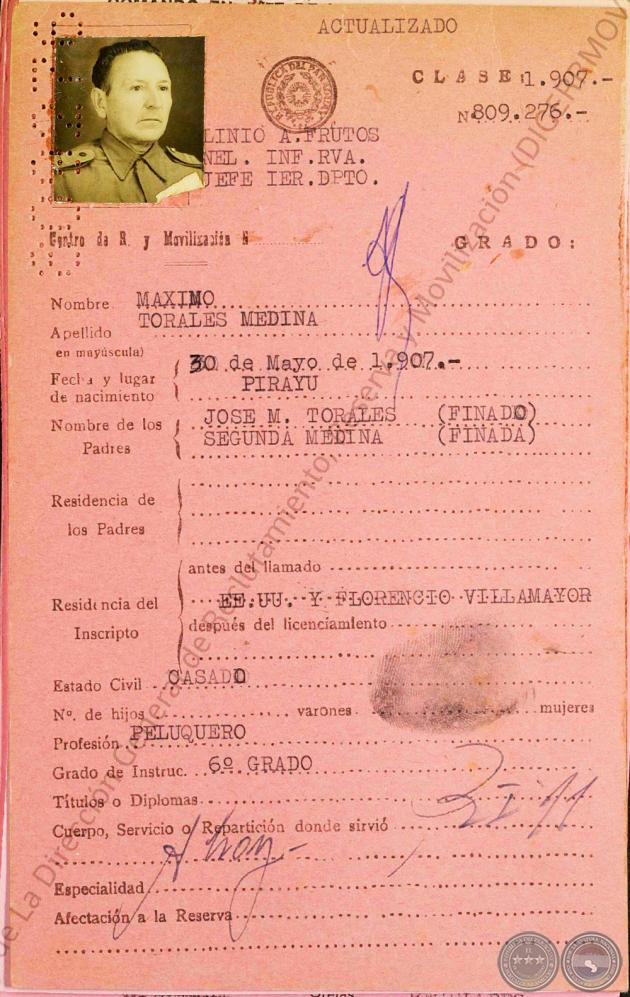 ACTUALIZADO
CLASE: 1.907.-
Nº 809.276.-
REPUBLICA DEL PARAGUAY
LINIO A. FRUTOS
NEL. INF.RVA.
JEFE IER.DPTO.
Centro de R. y Movilización
GRADO:
Nombre MAXIMO
Apellido TORALES MEDINA
en mayúscula)
Fecha y lugar de nacimiento 30 de Mayo de 1.907.-
PIRAYU
Nombre de los Padres JOSE M. TORALES (FINADO)
SEGUNDA MEDINA (FINADA)
Residencia de los Padres
antes del llamado
Residencia del Inscripto EE.UU. Y FLORENCIO VILLAMAYOR
después del licenciamiento
Estado Civil CASADO
Nº. de hijos varones mujeres
Profesión PELUQUERO
Grado de Instruc. 6º GRADO
Títulos o Diplomas
Cuerpo, Servicio o Repartición donde sirvió
Especialidad
Afectación a la Reserva
de La Dirección General de Reclutamiento, Reserva y Movilización (DIGERRMOV